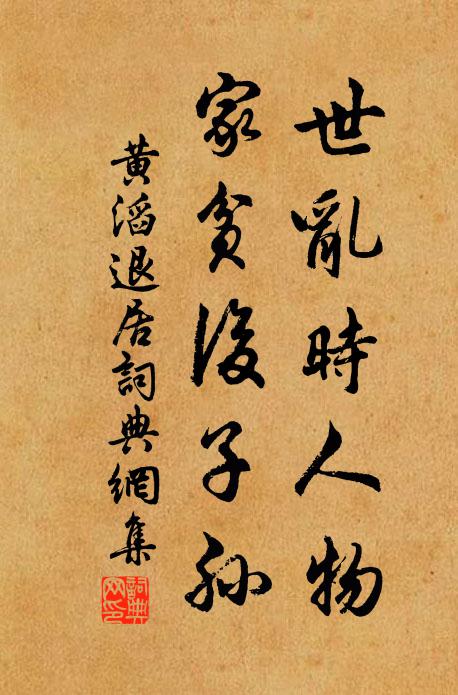 世亂時人物
家貧後子孫
黃滔退居詞典網集
詞典网印